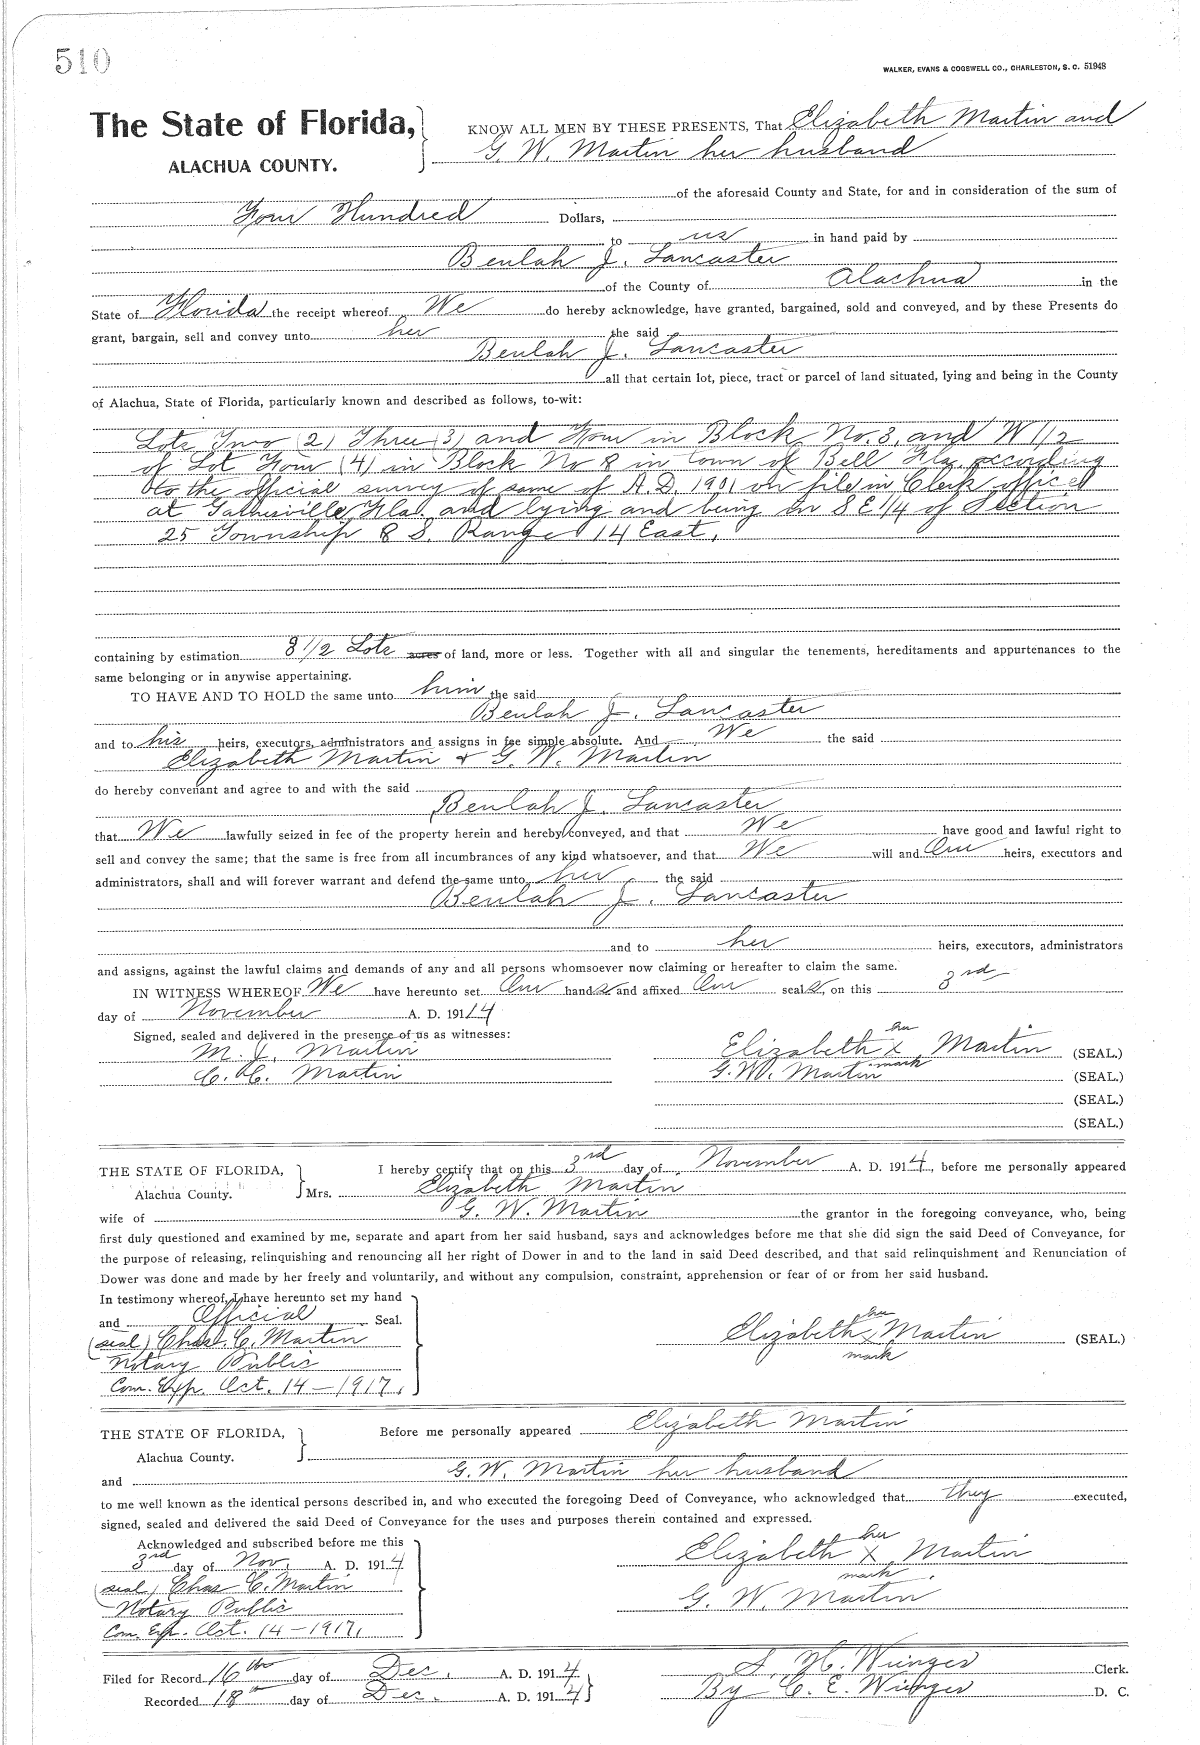 510
WALKER, EVANS & COGSWELL CO., CHARLESTON, S. C. 51948
The State of Florida,
ALACHUA COUNTY.
KNOW ALL MEN BY THESE PRESENTS, That Elizabeth Martin and
G. W. Martin her husband
of the aforesaid County and State, for and in consideration of the sum of
Four Hundred Dollars,
to us in hand paid by
Beulah J. Lancaster
of the County of Alachua in the
State of Florida the receipt whereof We do hereby acknowledge, have granted, bargained, sold and conveyed, and by these Presents do
grant, bargain, sell and convey unto her the said
Beulah J. Lancaster
all that certain lot, piece, tract or parcel of land situated, lying and being in the County
of Alachua, State of Florida, particularly known and described as follows, to-wit:
Lots Two (2) Three (3) and Four in Block No. 3, and W 1/2
of Lot Four (4) in Block No 8 in town of Bell Fla. according
to the official survey of same of A.D. 1901 on file in Clerk office
at Gainesville, Fla. and lying and being in S E 1/4 of Section
25 Township 8 S. Range 14 East.
containing by estimation 3 1/2 Lots acres of land, more or less. Together with all and singular the tenements, hereditaments and appurtenances to the
same belonging or in anywise appertaining.
TO HAVE AND TO HOLD the same unto him the said
Beulah J. Lancaster
and to his heirs, executors, administrators and assigns in fee simple absolute. And We the said
Elizabeth Martin & G. W. Martin
do hereby convenant and agree to and with the said
Beulah J. Lancaster
that We lawfully seized in fee of the property herein and hereby conveyed, and that We have good and lawful right to
sell and convey the same; that the same is free from all incumbrances of any kind whatsoever, and that We will and Our heirs, executors and
administrators, shall and will forever warrant and defend the same unto her the said
Beulah J. Lancaster
and to her heirs, executors, administrators
and assigns, against the lawful claims and demands of any and all persons whomsoever now claiming or hereafter to claim the same.
IN WITNESS WHEREOF We have hereunto set Our hands and affixed Our seals, on this 3rd
day of November A. D. 1914
Signed, sealed and delivered in the presence of us as witnesses:
M. J. Martin
C. C. Martin
her
Elizabeth X Martin (SEAL.)
mark
G. W. Martin (SEAL.)
(SEAL.)
(SEAL.)
THE STATE OF FLORIDA,
Alachua County.
I hereby certify that on this 3rd day of November A. D. 1914, before me personally appeared
Mrs. Elizabeth Martin
wife of G. W. Martin the grantor in the foregoing conveyance, who, being
first duly questioned and examined by me, separate and apart from her said husband, says and acknowledges before me that she did sign the said Deed of Conveyance, for
the purpose of releasing, relinquishing and renouncing all her right of Dower in and to the land in said Deed described, and that said relinquishment and Renunciation of
Dower was done and made by her freely and voluntarily, and without any compulsion, constraint, apprehension or fear of or from her said husband.
In testimony whereof, I have hereunto set my hand
and Official Seal.
(seal) Chas. C. Martin
Notary Public
Com. Exp. Oct. 14-1917.
her
Elizabeth X Martin (SEAL.)
mark
THE STATE OF FLORIDA,
Alachua County.
Before me personally appeared Elizabeth Martin
and G. W. Martin her husband
to me well known as the identical persons described in, and who executed the foregoing Deed of Conveyance, who acknowledged that they executed,
signed, sealed and delivered the said Deed of Conveyance for the uses and purposes therein contained and expressed.
Acknowledged and subscribed before me this
3rd day of Nov. A. D. 1914
(seal) Chas C. Martin
Notary Public
Com. Exp. Oct. 14-1917.
her
Elizabeth X Martin
mark
G. W. Martin
Filed for Record 16th day of Dec. A. D. 1914
Recorded 18th day of Dec. A. D. 1914
S. H. Wienges Clerk.
By C. E. Wienges D. C.